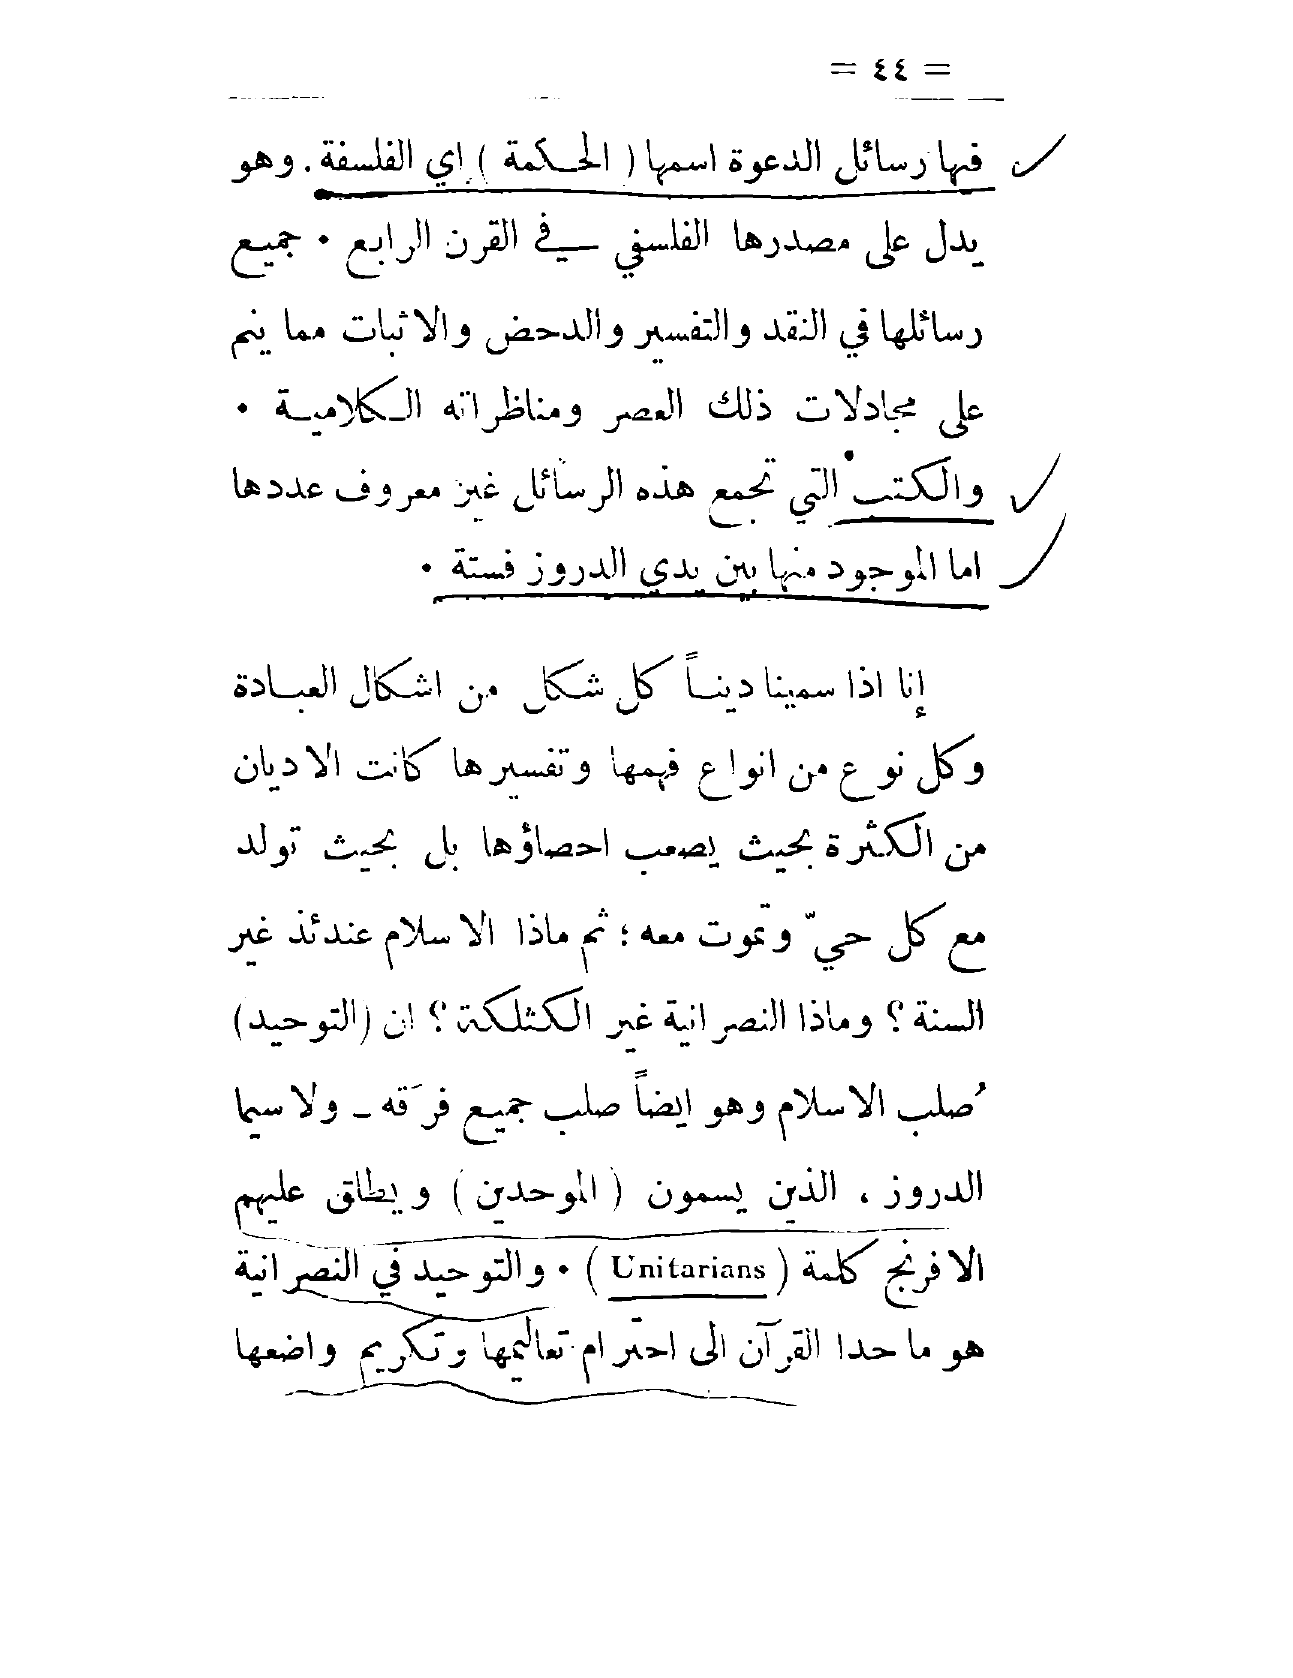 = ٤٤ =
فيها رسائل الدعوة اسمها ( الحكمة ) اي الفلسفة . وهو
يدل على مصدرها الفلسفي في القرن الرابع • جميع
رسائلها في النقد والتفسير والدحض والاثبات مما ينم
على مجادلات ذلك العصر ومناظراته الكلامية •
والكتب التي تجمع هذه الرسائل غير معروف عددها
اما الموجود منها بين يدي الدروز فستة •
إنا اذا سمينا ديناً كل شكل من اشكال العبادة
وكل نوع من انواع فهمها وتفسيرها كانت الاديان
من الكثرة بحيث يصعب احصاؤها بل بحيث تولد
مع كل حيّ وتموت معه ؛ ثم ماذا الاسلام عندئذ غير
السنة ؟ وماذا النصرانية غير الكثلكة ؟ ان (التوحيد)
صُلب الاسلام وهو ايضاً صلب جميع فرَقه ـ ولا سيما
الدروز ، الذين يسمون ( الموحدين ) ويطلق عليهم
الافرنج كلمة ( Unitarians ) • والتوحيد في النصرانية
هو ما حدا القرآن الى احترام تعاليمها وتكريم واضعها